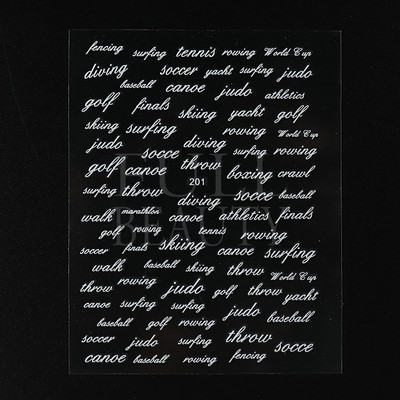 fencing surfing tennis rowing World Cup
diving soccer yacht surfing judo
baseball canoe judo athletics
golf finals skiing yacht golf
skiing surfing rowing World Cup
judo socce diving surfing rowing
golf canoe throw boxing crawl
201
surfing throw diving socce baseball
walk marathlon canoe athletics finals
golf rowing tennis rowing
soccer finals skiing canoe surfing
walk baseball skiing throw World Cup
throw rowing judo golf throw yacht
canoe surfing surfing judo baseball
baseball golf rowing throw
soccer judo rowing socce
canoe baseball rowing fencing
FULL BEAUTY